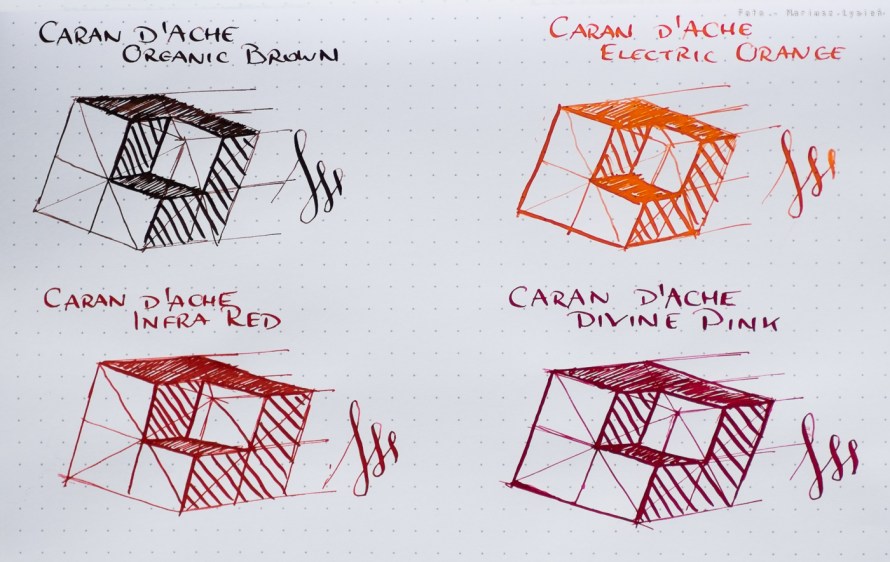 Foto - Mariusz Łysień
CARAN D'ACHE
ORGANIC BROWN
CARAN D'ACHE
ELECTRIC ORANGE
CARAN D'ACHE
INFRA RED
CARAN D'ACHE
DIVINE PINK